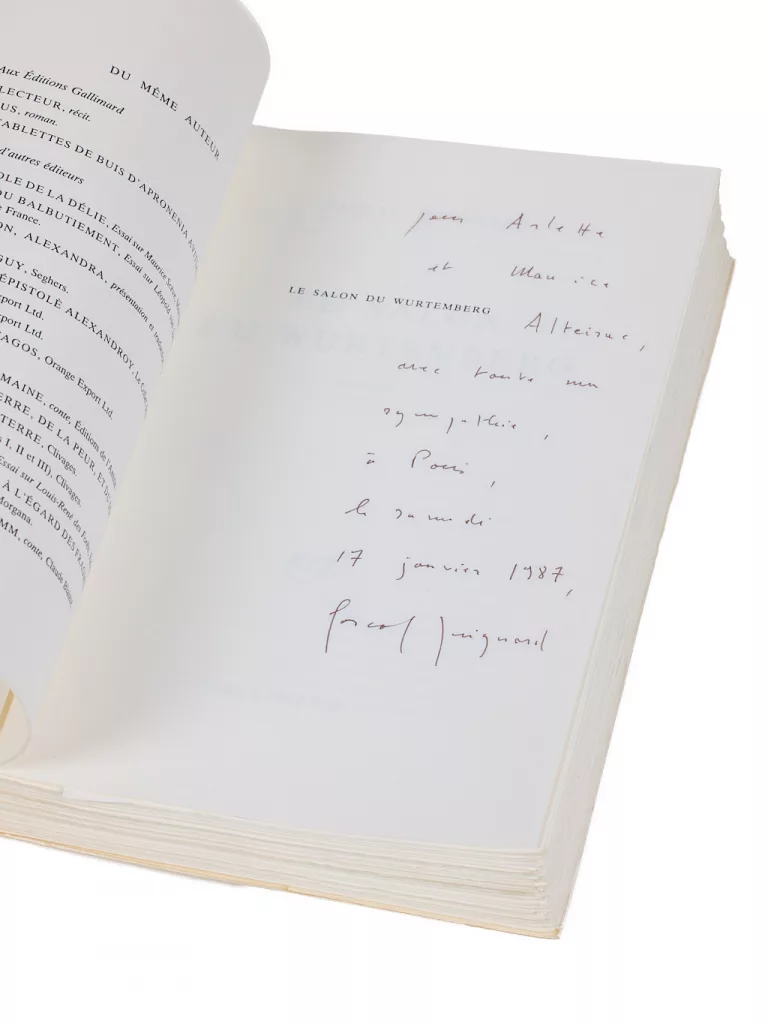 DU MÊME AUTEUR
Aux Éditions Gallimard
LECTEUR, récit.
US, roman.
TABLETTES DE BUIS D'APRONENIA
d'autres éditeurs
OLE DE LA DÉLIE, Essai sur Maurice Scève
DU BALBUTIEMENT, Essai sur Léopold
e France.
ON, ALEXANDRA, présentation et
GUY, Seghers.
ÉPISTOLÈ ALEXANDROY, Le
xport Ltd.
port Ltd.
AGOS, Orange Export Ltd.
MAINE, conte, Éditions de
ERRE, DE LA PEUR, ET DU
TERRE, Clivages.
s I, II et III), Clivages.
Essai sur Louis-René des
À L'ÉGARD DES
Morgana.
MM, conte, Claude
pour Arlette
et Maurice
LE SALON DU WURTEMBERG
avec toute ma
sympathie,
à Paris,
le samedi
17 janvier 1987,
Pascal Quignard